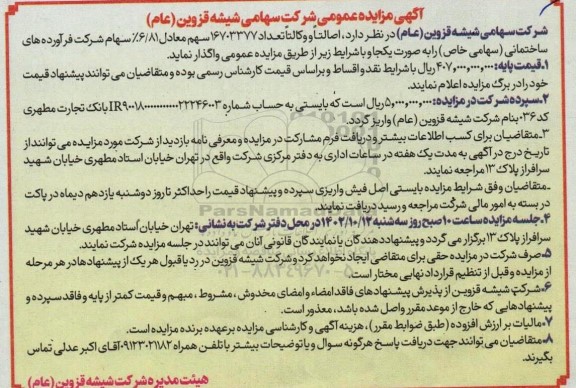 آگهی مزایده عمومی شرکت سهامی شیشه قزوین (عام)
شرکت سهامی شیشه قزوین (عام) در نظر دارد، اصالتاً و وکالتاً تعداد ۱۶۷۰۳۳۷۷ سهم معادل ۶/۸۱٪ سهام شرکت فرآورده های
ساختمانی (سهامی خاص) را به صورت یکجا و با شرایط زیر از طریق مزایده عمومی واگذار نماید.
۱.قیمت پایه: ۴۰۷,۰۰۰,۰۰۰,۰۰۰ ریال با شرایط نقد و اقساط و براساس قیمت کارشناس رسمی بوده و متقاضیان می توانند پیشنهاد قیمت
خود را در برگ مزایده اعلام نمایند.
۲.سپرده شرکت در مزایده: ۵,۰۰۰,۰۰۰,۰۰۰ ریال است که بایستی به حساب شماره بانک تجارت مطهری
کد ۰۳۶ بنام شرکت شیشه قزوین (عام) واریز گردد.
۳.متقاضیان برای کسب اطلاعات بیشتر و دریافت فرم مشارکت در مزایده و معرفی نامه بازدید از شرکت مورد مزایده می توانند از
تاریخ درج در آگهی به مدت یک هفته در ساعات اداری به دفتر مرکزی شرکت واقع در تهران خیابان استاد مطهری خیابان شهید
سرافراز پلاک ۱۳ مراجعه نمایند.
_متقاضیان وفق شرایط مزایده بایستی اصل فیش واریزی سپرده و پیشنهاد قیمت را حداکثر تا روز دوشنبه یازدهم دیماه در پاکت
در بسته به امور مالی شرکت مراجعه و رسید دریافت نمایند.
۴.جلسه مزایده ساعت ۱۰ صبح روز سه شنبه ۱۴۰۲/۱۰/۱۲ در محل دفتر شرکت به نشانی: تهران خیابان استاد مطهری خیابان شهید
سرافراز پلاک ۱۳ برگزار می گردد و پیشنهاددهندگان یا نمایندگان قانونی آنان می توانند در جلسه مزایده شرکت نمایند.
۵.صرف شرکت در مزایده حقی برای متقاضی ایجاد نخواهد کرد و شرکت شیشه قزوین در رد یا قبول هر یک از پیشنهادها در هر مرحله
از مزایده و قبل از تنظیم قرارداد نهایی مختار است.
۶.شرکت شیشه قزوین از پذیرش پیشنهادهای فاقد امضاء و امضای مخدوش، مشروط، مبهم و قیمت کمتر از پایه و فاقد سپرده و
پیشنهادهایی که خارج از موعد مقرر واصل شده باشد، معذور است.
۷.مالیات بر ارزش افزوده (طبق ضوابط مقرر)، هزینه آگهی و کارشناسی مزایده بر عهده برنده مزایده است.
۸.متقاضیان می توانند جهت دریافت پاسخ هرگونه سوال و یا توضیحات بیشتر با تلفن همراه ۰۹۱۲۳۰۲۱۱۸۲ آقای اکبر عدلی تماس
بگیرند.
هیئت مدیره شرکت شیشه قزوین (عام)
ParsNamad
۰۲۱-۸۸۳۴۹۶۷۰-۵